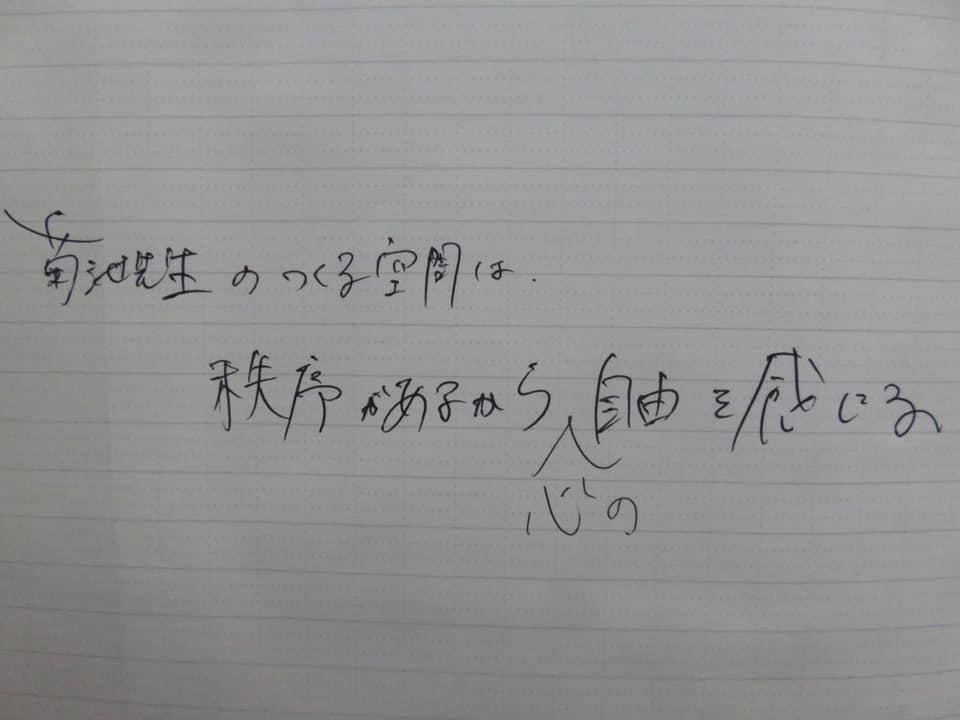 菊池先生のつくる空間は.
秩序があるから自由を感じる
心の